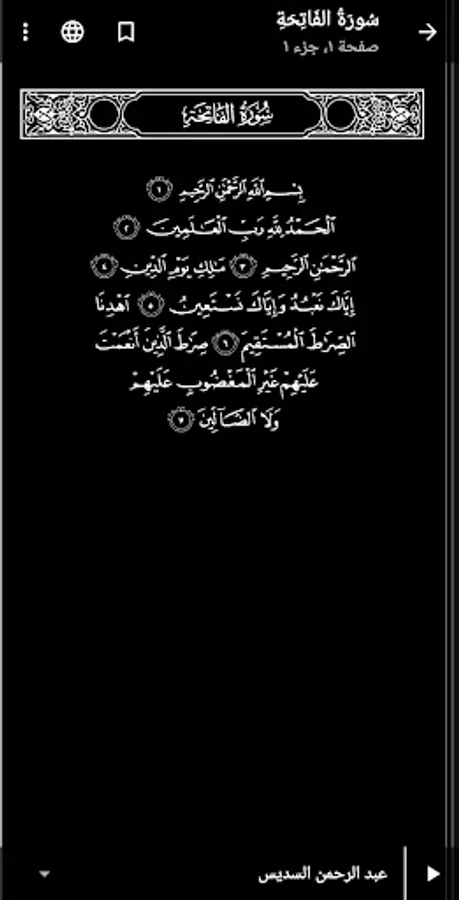 سُورَةُ الفَاتِحَةِ
صفحة ١، جزء ١
سُورَةُ الفَاتِحَةِ
بِسْمِ ٱللَّهِ ٱلرَّحْمَٰنِ ٱلرَّحِيمِ ١
ٱلْحَمْدُ لِلَّهِ رَبِّ ٱلْعَٰلَمِينَ ٢
ٱلرَّحْمَٰنِ ٱلرَّحِيمِ ٣ مَٰلِكِ يَوْمِ ٱلدِّينِ ٤
إِيَّاكَ نَعْبُدُ وَإِيَّاكَ نَسْتَعِينُ ٥ ٱهْدِنَا
ٱلصِّرَٰطَ ٱلْمُسْتَقِيمَ ٦ صِرَٰطَ ٱلَّذِينَ أَنْعَمْتَ
عَلَيْهِمْ غَيْرِ ٱلْمَغْضُوبِ عَلَيْهِمْ
وَلَا ٱلضَّآلِّينَ ٧
عبد الرحمن السديس